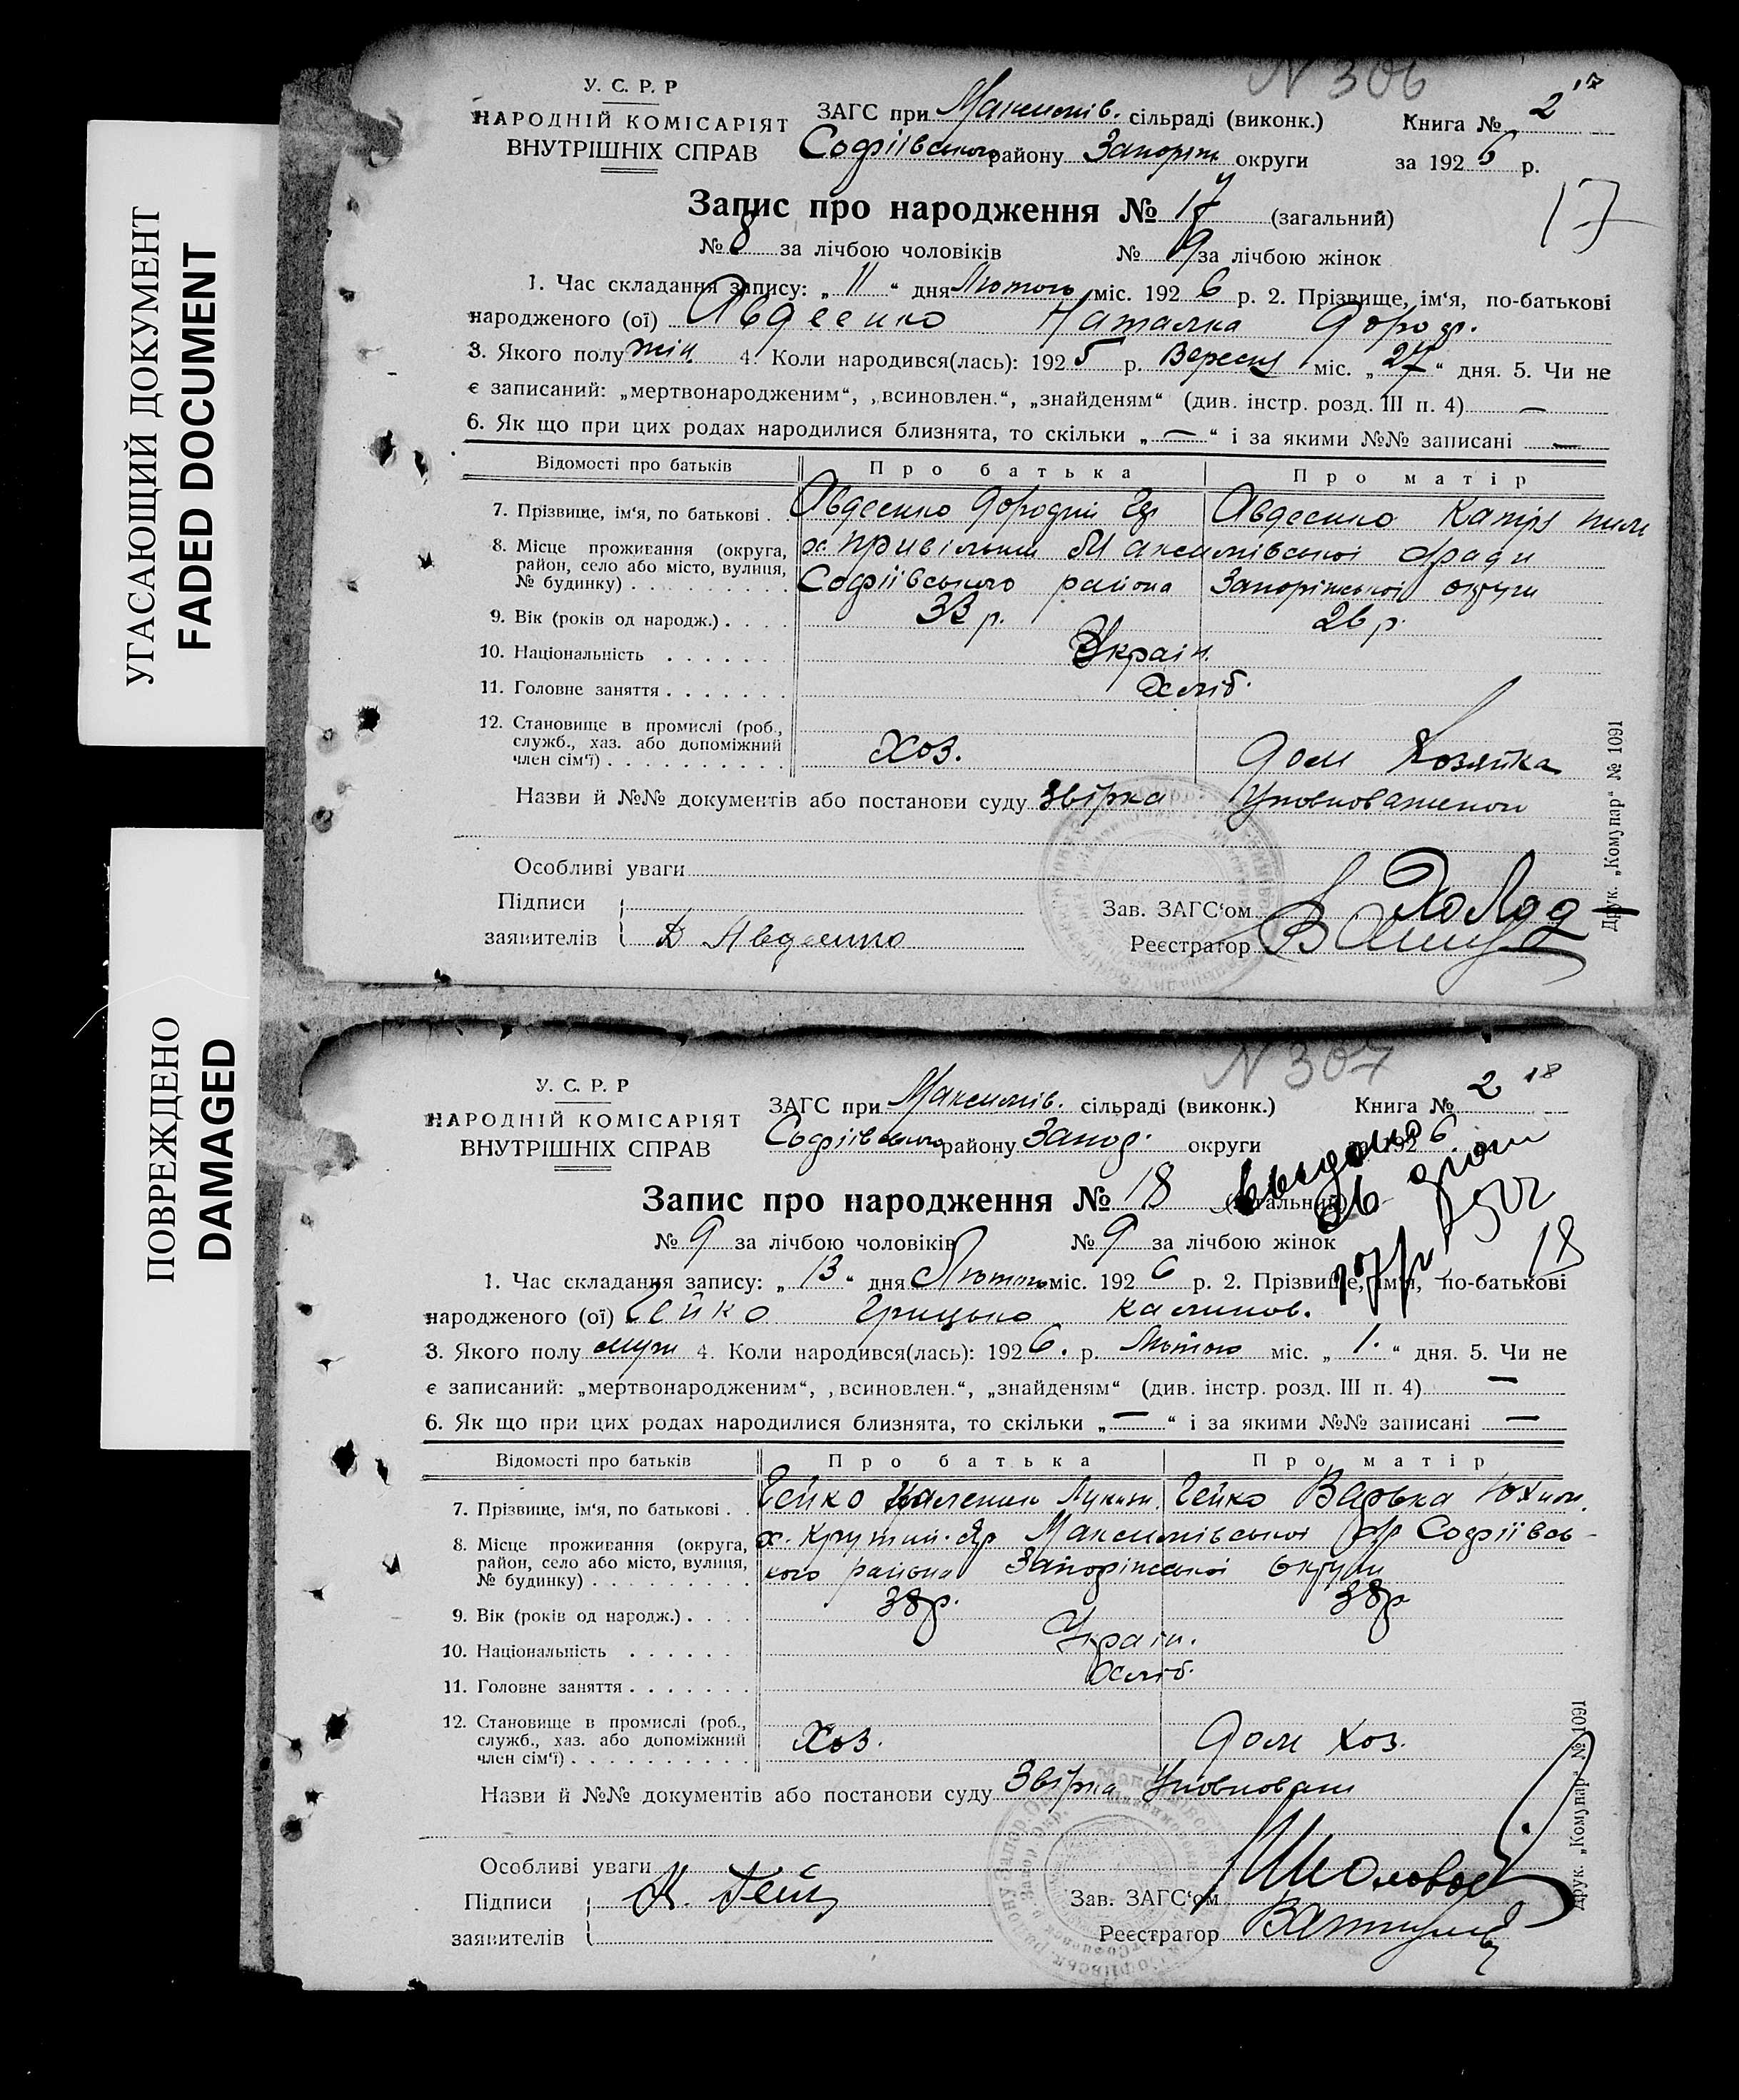 УГАСАЮЩИЙ ДОКУМЕНТ
FADED DOCUMENT
ПОВРЕЖДЕНО
DAMAGED
N 306
У. С. Р. Р
НАРОДНІЙ КОМІСАРІЯТ
ВНУТРІШНІХ СПРАВ
ЗАГС при Максимів. сільраді (виконк.)
Книга № 2 17
Софіівського району Запоріж округи
за 1926 р.
Запис про народження № 17 (загальний)
17
№ 8 за лічбою чоловіків № 9 за лічбою жінок
1. Час складання запису: „ 11 “ дня Лютого міс. 1926 р. 2. Прізвище, ім‘я, по-батькові
народженого (ої) Авдеенко Наталка Дороф.
3. Якого полу жін 4. Коли народився(лась): 1925 р. Вересня міс. „ 27 “ дня. 5. Чи не
є записаний: „мертвонародженим“, „всиновлен.“, „знайденям“ (див. інстр. розд. III п. 4) —
6. Як що при цих родах народилися близнята, то скільки „ — “ і за якими №№ записані —
Відомості про батьків Про батька Про матір
7. Прізвище, ім‘я, по батькові . Авдеенко Дорофій Авдеенко
8. Місце проживання (округа, район, село або місто, вулиня, № будинку) . . . . . . . . . .
х. Привільний Максимівськоі с/ради
Софіівського района Запоріжськоі округи
9. Вік (років од народж.) . . . . 33 р. 26 р.
10. Національність . . . . . . Украін.
11. Головне заняття . . . . . . . Хліб.
12. Становище в промислі (роб., служб., хаз. або допоміжний член сім‘ї) . . . . . . . . . .
Хоз. Дом Хозяйка
Назви й №№ документів або постанови суду Звірка Уповноваженои
Особливі уваги
Підписи
заявителів Д Авдеенко
Зав. ЗАГС‘ом
Реєстратор
Друк. „Комупар“ № 1091
N 307
У. С. Р. Р
НАРОДНІЙ КОМІСАРІЯТ
ВНУТРІШНІХ СПРАВ
ЗАГС при Максимів. сільраді (виконк.)
Книга № 2 18
Софіівського району Запор. округи
192 6
Запис про народження № 18 (загальний)
18
№ 9 за лічбою чоловіків № 9 за лічбою жінок
1. Час складання запису: „ 13 “ дня Лютого міс. 1926 р. 2. Прізвище, ім‘я, по-батькові
народженого (ої) Гейко Грицько Калинов.
3. Якого полу муж 4. Коли народився(лась): 1926. р. Лютого міс. „ 1. “ дня. 5. Чи не
є записаний: „мертвонародженим“, „всиновлен.“, „знайденям“ (див. інстр. розд. III п. 4) —
6. Як що при цих родах народилися близнята, то скільки „ — “ і за якими №№ записані —
Відомості про батьків Про батька Про матір
7. Прізвище, ім‘я, по батькові . . Гейко Каленик Гейко Варька Юхим.
8. Місце проживання (округа, район, село або місто, вулиня, № будинку) . . . . . . . . . .
х. Крутий Яр Максимівськоі с/р Софіівсь-
кого района Запоріжськоі округи
9. Вік (років од народж.) . . . . 38р. 38р
10. Національність . . . . . . Украін.
11. Головне заняття . . . . . . . Хліб.
12. Становище в промислі (роб., служб., хаз. або допоміжний член сім‘ї) . . . . . . . . . .
Хоз. Дом Хоз.
Назви й №№ документів або постанови суду Звірка Уповноваж
Особливі уваги
Підписи
заявителів
Зав. ЗАГС‘ом
Реєстратор
Друк. „Комупар“ № 1091